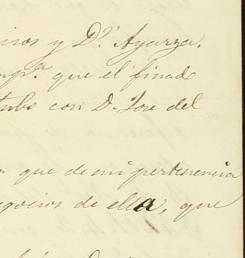 y D.ª Ayarza,
que el finado
tubo con D. Jose del
que de mi pertenencia
negocios de ella, que